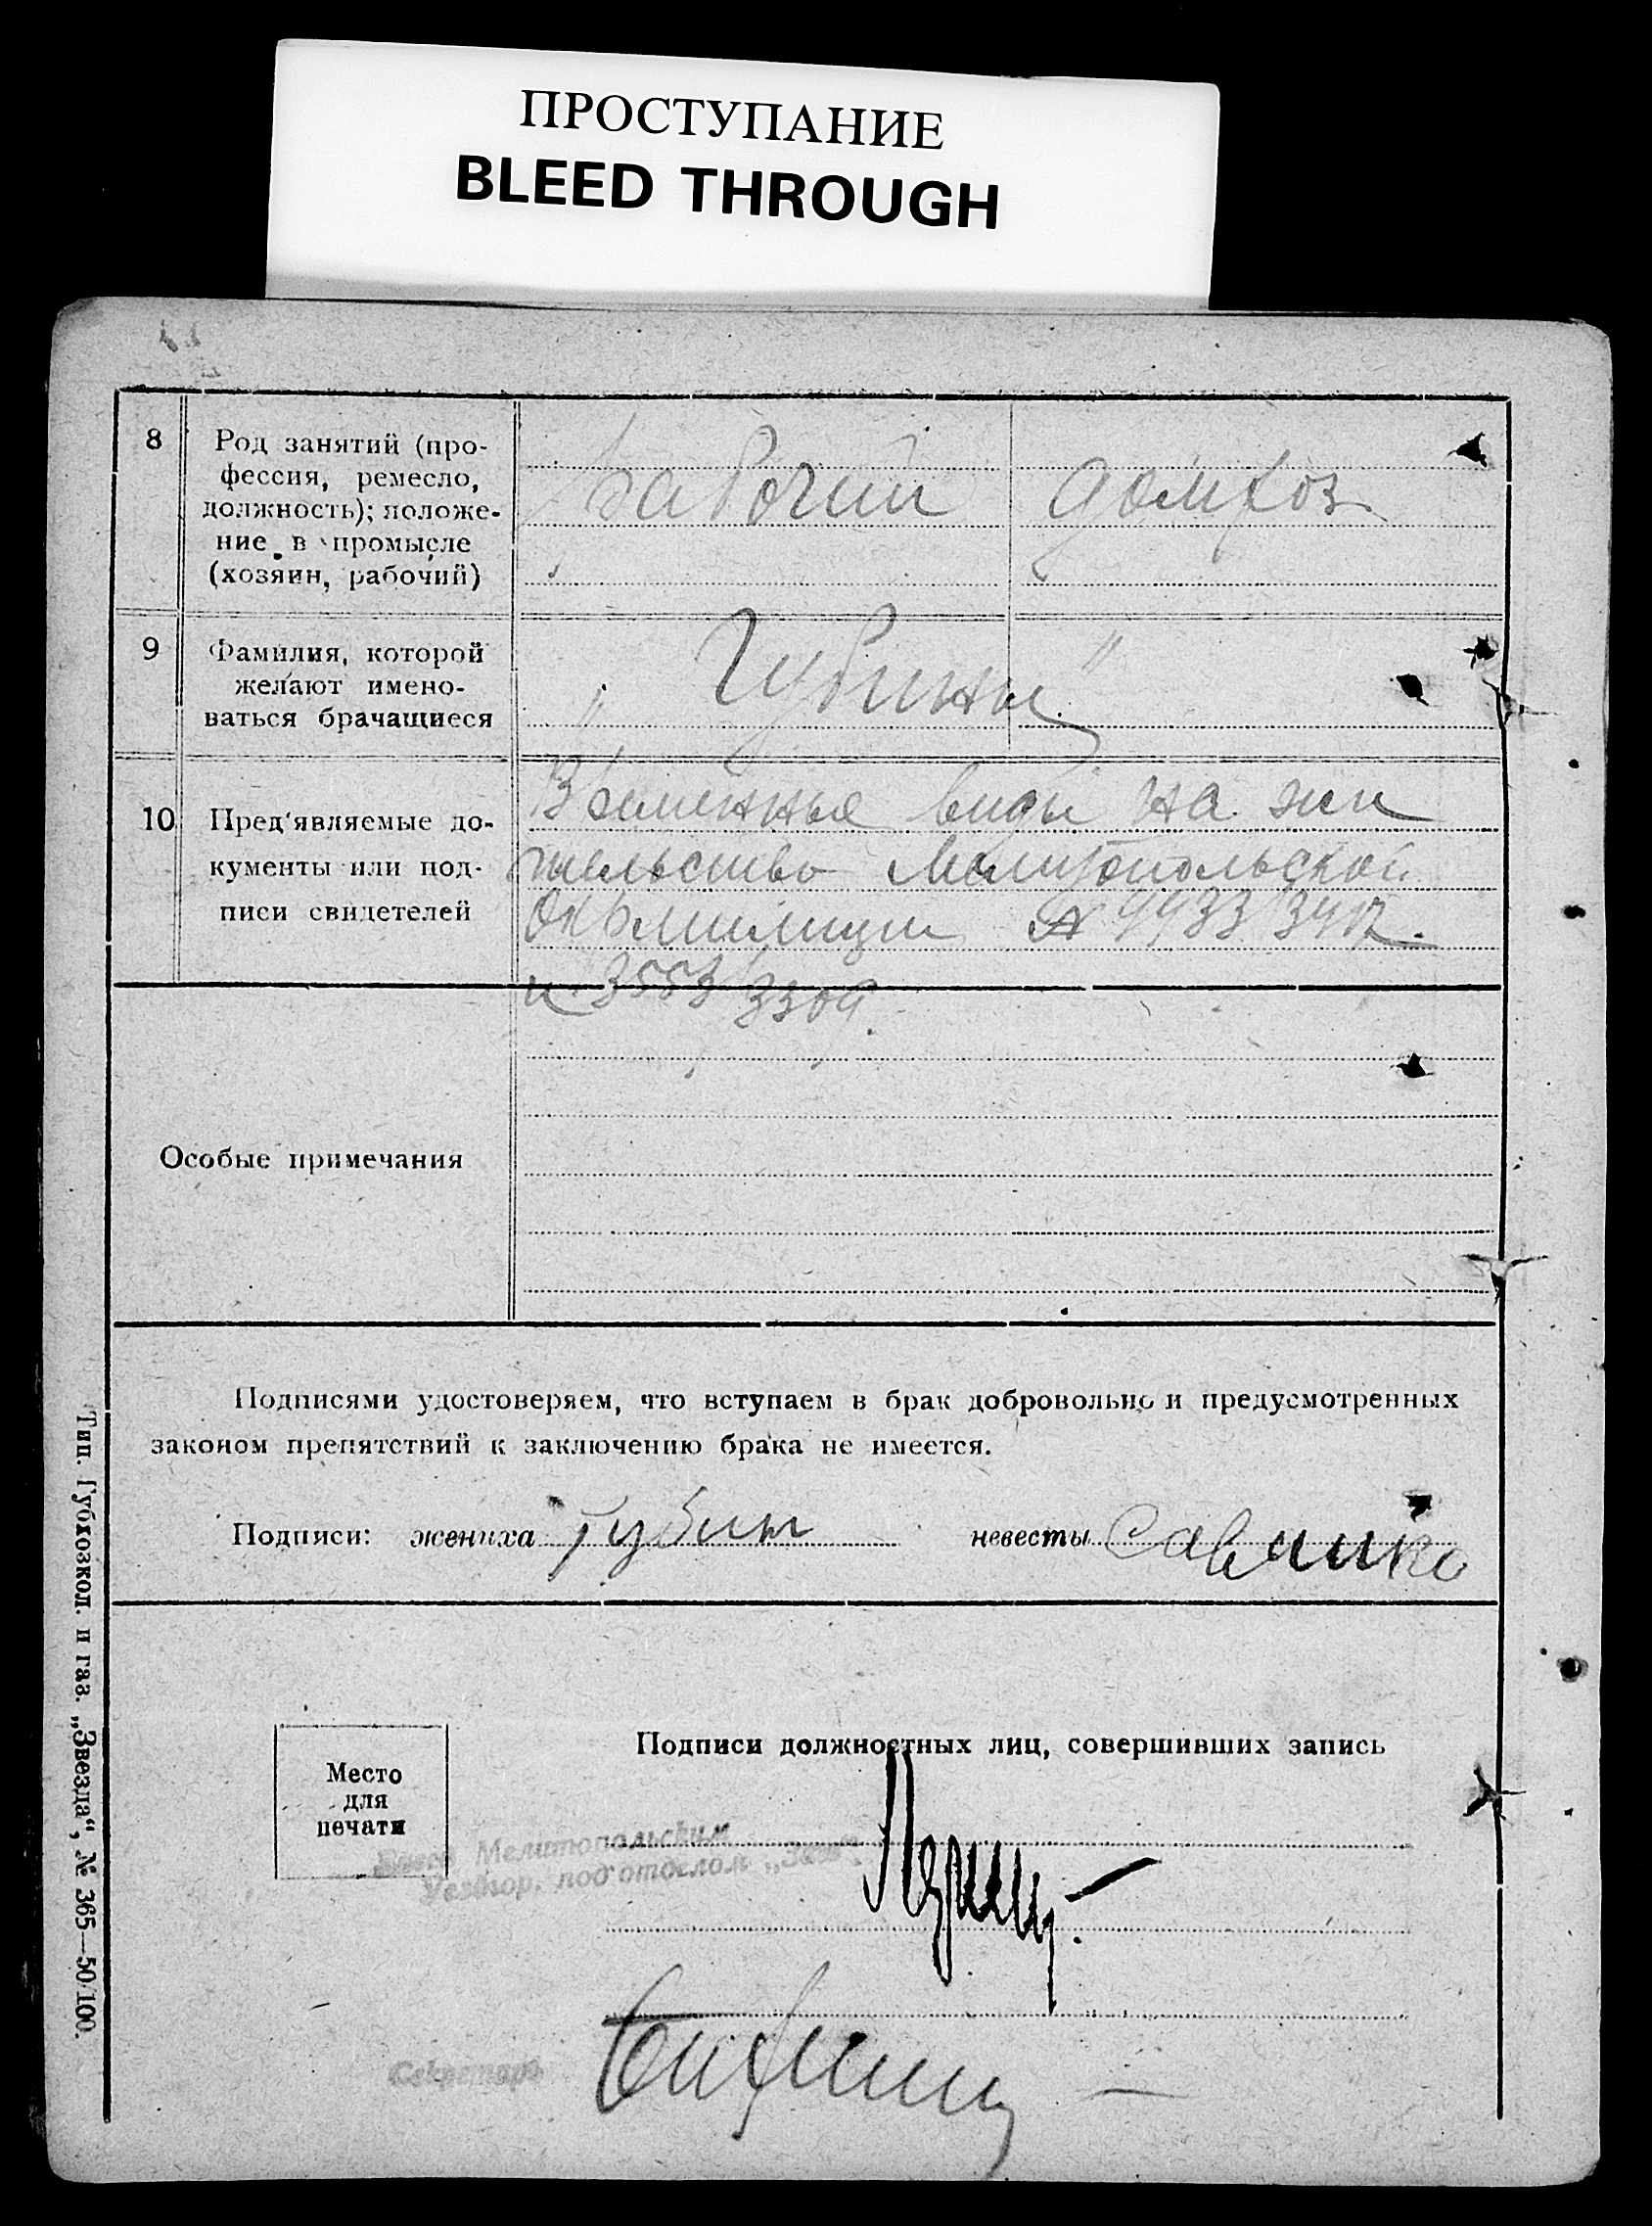 ПРОСТУПАНИЕ
BLEED THROUGH
8 Род занятий (про-
фессия, ремесло,
должность); положе-
ние в промысле
(хозяин, рабочий)
рабочий
домхоз
9 Фамилия, которой
желают имено-
ваться брачащиеся
" Губины "
10 Пред'являемые до-
кументы или под-
писи свидетелей
Временные виды на жи
тельство Мелитопольской
Окрмилиции №
и 3553/3309.
Особые примечания
Подписями удостоверяем, что вступаем в брак добровольно и предусмотренных
законом препятствий к заключению брака не имеется.
Подписи: жениха Губин невесты
Место
для
печати
Подписи должностных лиц, совершивших запись
Мелитопольским
подотделом „Загс"
Секретарь
Тип. Губхозкол. и газ. „Звезда", № 365—50/100.